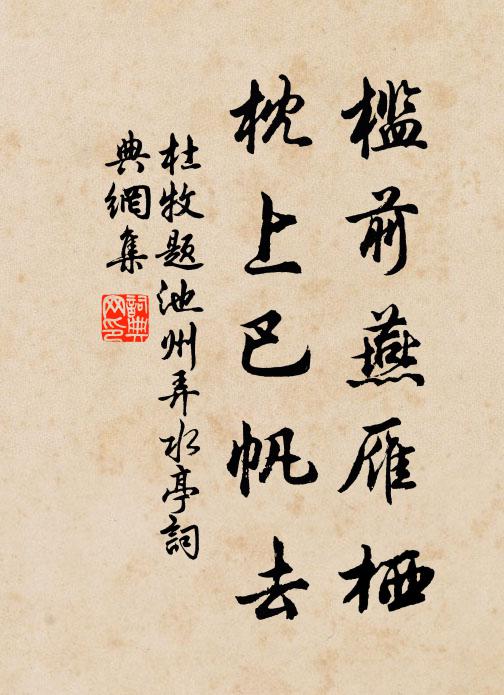 檻前燕雁栖
枕上巴帆去
杜牧題池州弄水亭詞
典網集
詞典网印